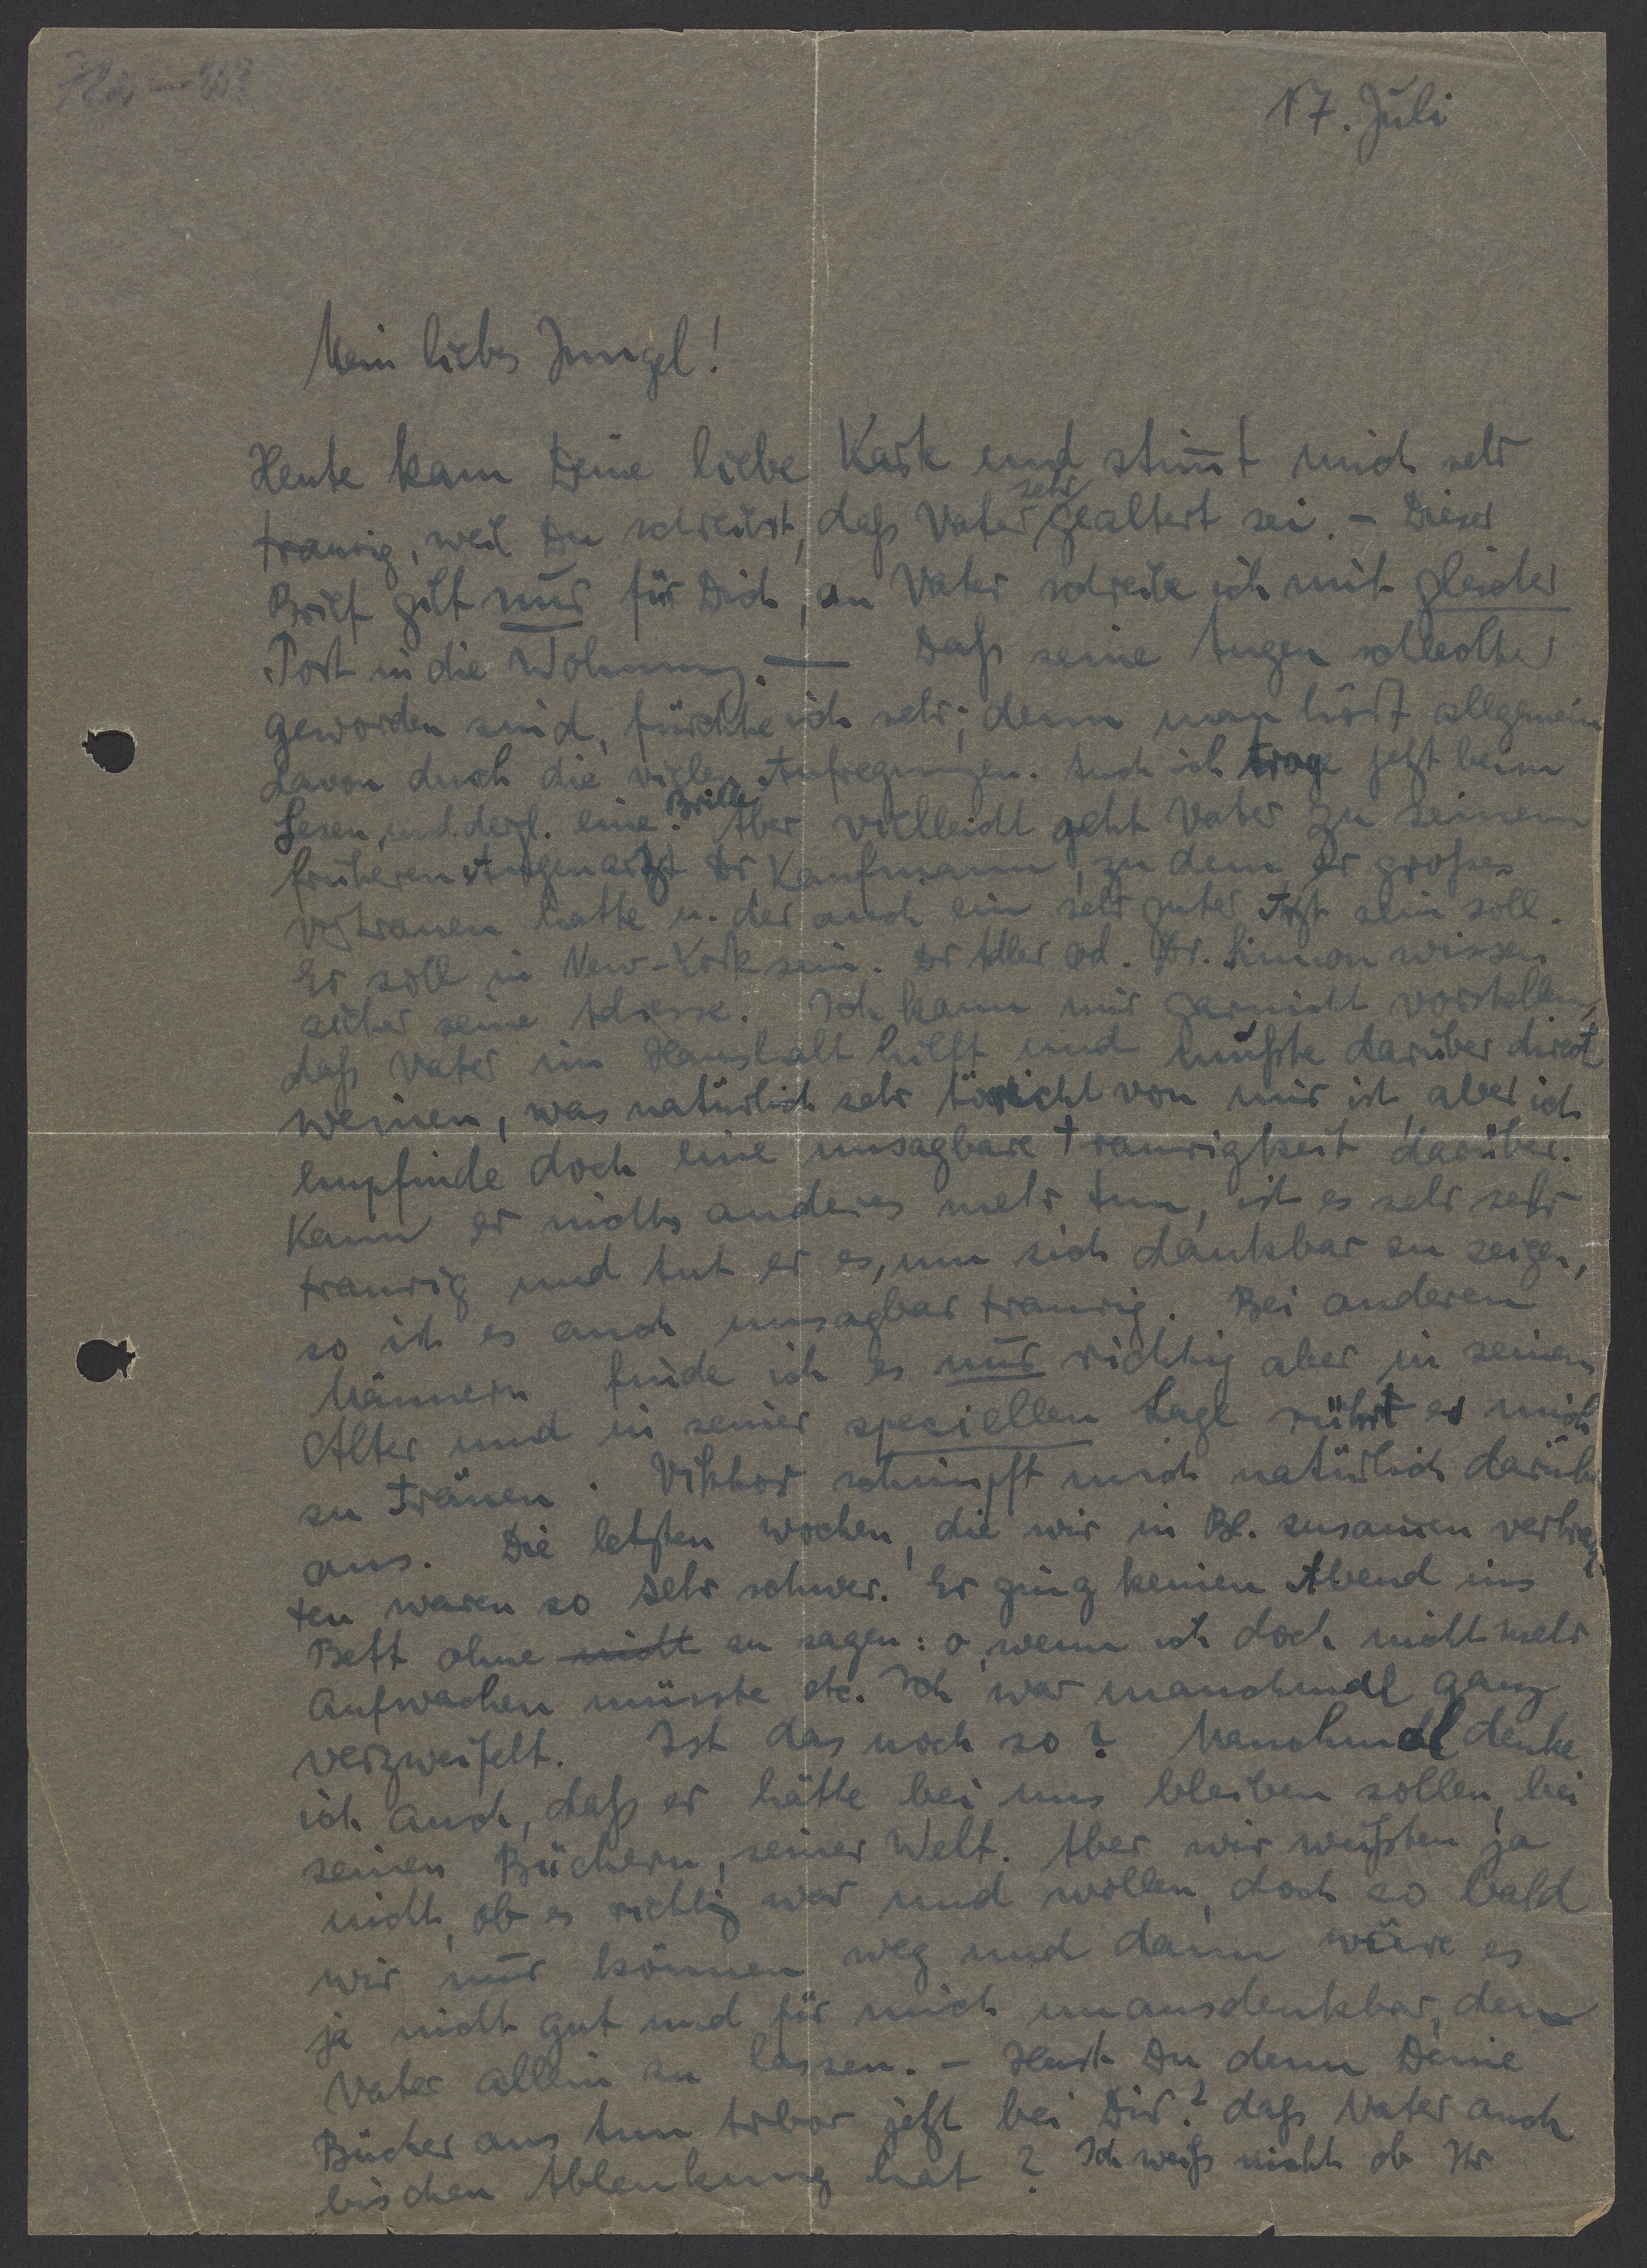 17. Juli
Mein liebes Jungel!
Heute kam Deine liebe Karte und stim̄t mich sehr
traurig, weil Du schreibst, dass Vater sehr gealtert sei. – Dieser
Brief gilt nur für Dich, an Vater schreibe ich mit gleicher
Post in die Wohnung. — Dass seine Augen schlechter
geworden sind, fürchte ich sehr; denn man hört allgemein
davon durch die vielen Aufregungen. Auch ich trage jetzt beim
Lesen und dergl. eine Brille. Aber vielleicht geht Vater zu seinem
früheren Augenarzt Dr Kaufmann, zu dem er grosses
Vertrauen hatte u. der auch ein sehr guter Arzt sein soll.
Er soll in New-York sein. Dr Adler od. Dr. Simon wissen
sicher seine Adresse. Ich kann mir garnicht vorstellen,
dass Vater im Haushalt hilft und musste darüber direct
weinen, was natürlich sehr töricht von mir ist, aber ich
empfinde doch eine unsagbare Traurigkeit darüber.
Kann er nichts anderes mehr tun, ist es sehr sehr
traurig und tut er es, um sich dankbar zu zeigen,
so ist es auch unsagbar traurig. Bei anderen
Männern finde ich es nur richtig aber in seinem
Alter und in seiner speciellen Lage rührt es mich
zu Tränen. Viktor schimpft mich natürlich darüber
aus. Die letzten Wochen, die wir in Bl. zusam̄en verbrach
ten waren so sehr schwer. Er ging keinen Abend ins
Bett ohne nicht zu sagen: o, wenn ich doch nicht mehr
aufwachen müsste etc. Ich war manchmal ganz
verzweifelt. Ist das noch so? Manchmal denke
ich auch, dass er hätte bei uns bleiben sollen, bei
seinen Büchern, seiner Welt. Aber wir wussten ja
nicht, ob es richtig war und wollen, doch so bald
wir nur können weg und dann wäre es
ja nicht gut und für mich unausdenkbar, den
Vater allein zu lassen. – Hast Du denn Deine
Bücher aus Ann Arbor jetzt bei Dir? dass Vater auch
bischen Ablenkung hat? Ich weiss nicht ob Ihr